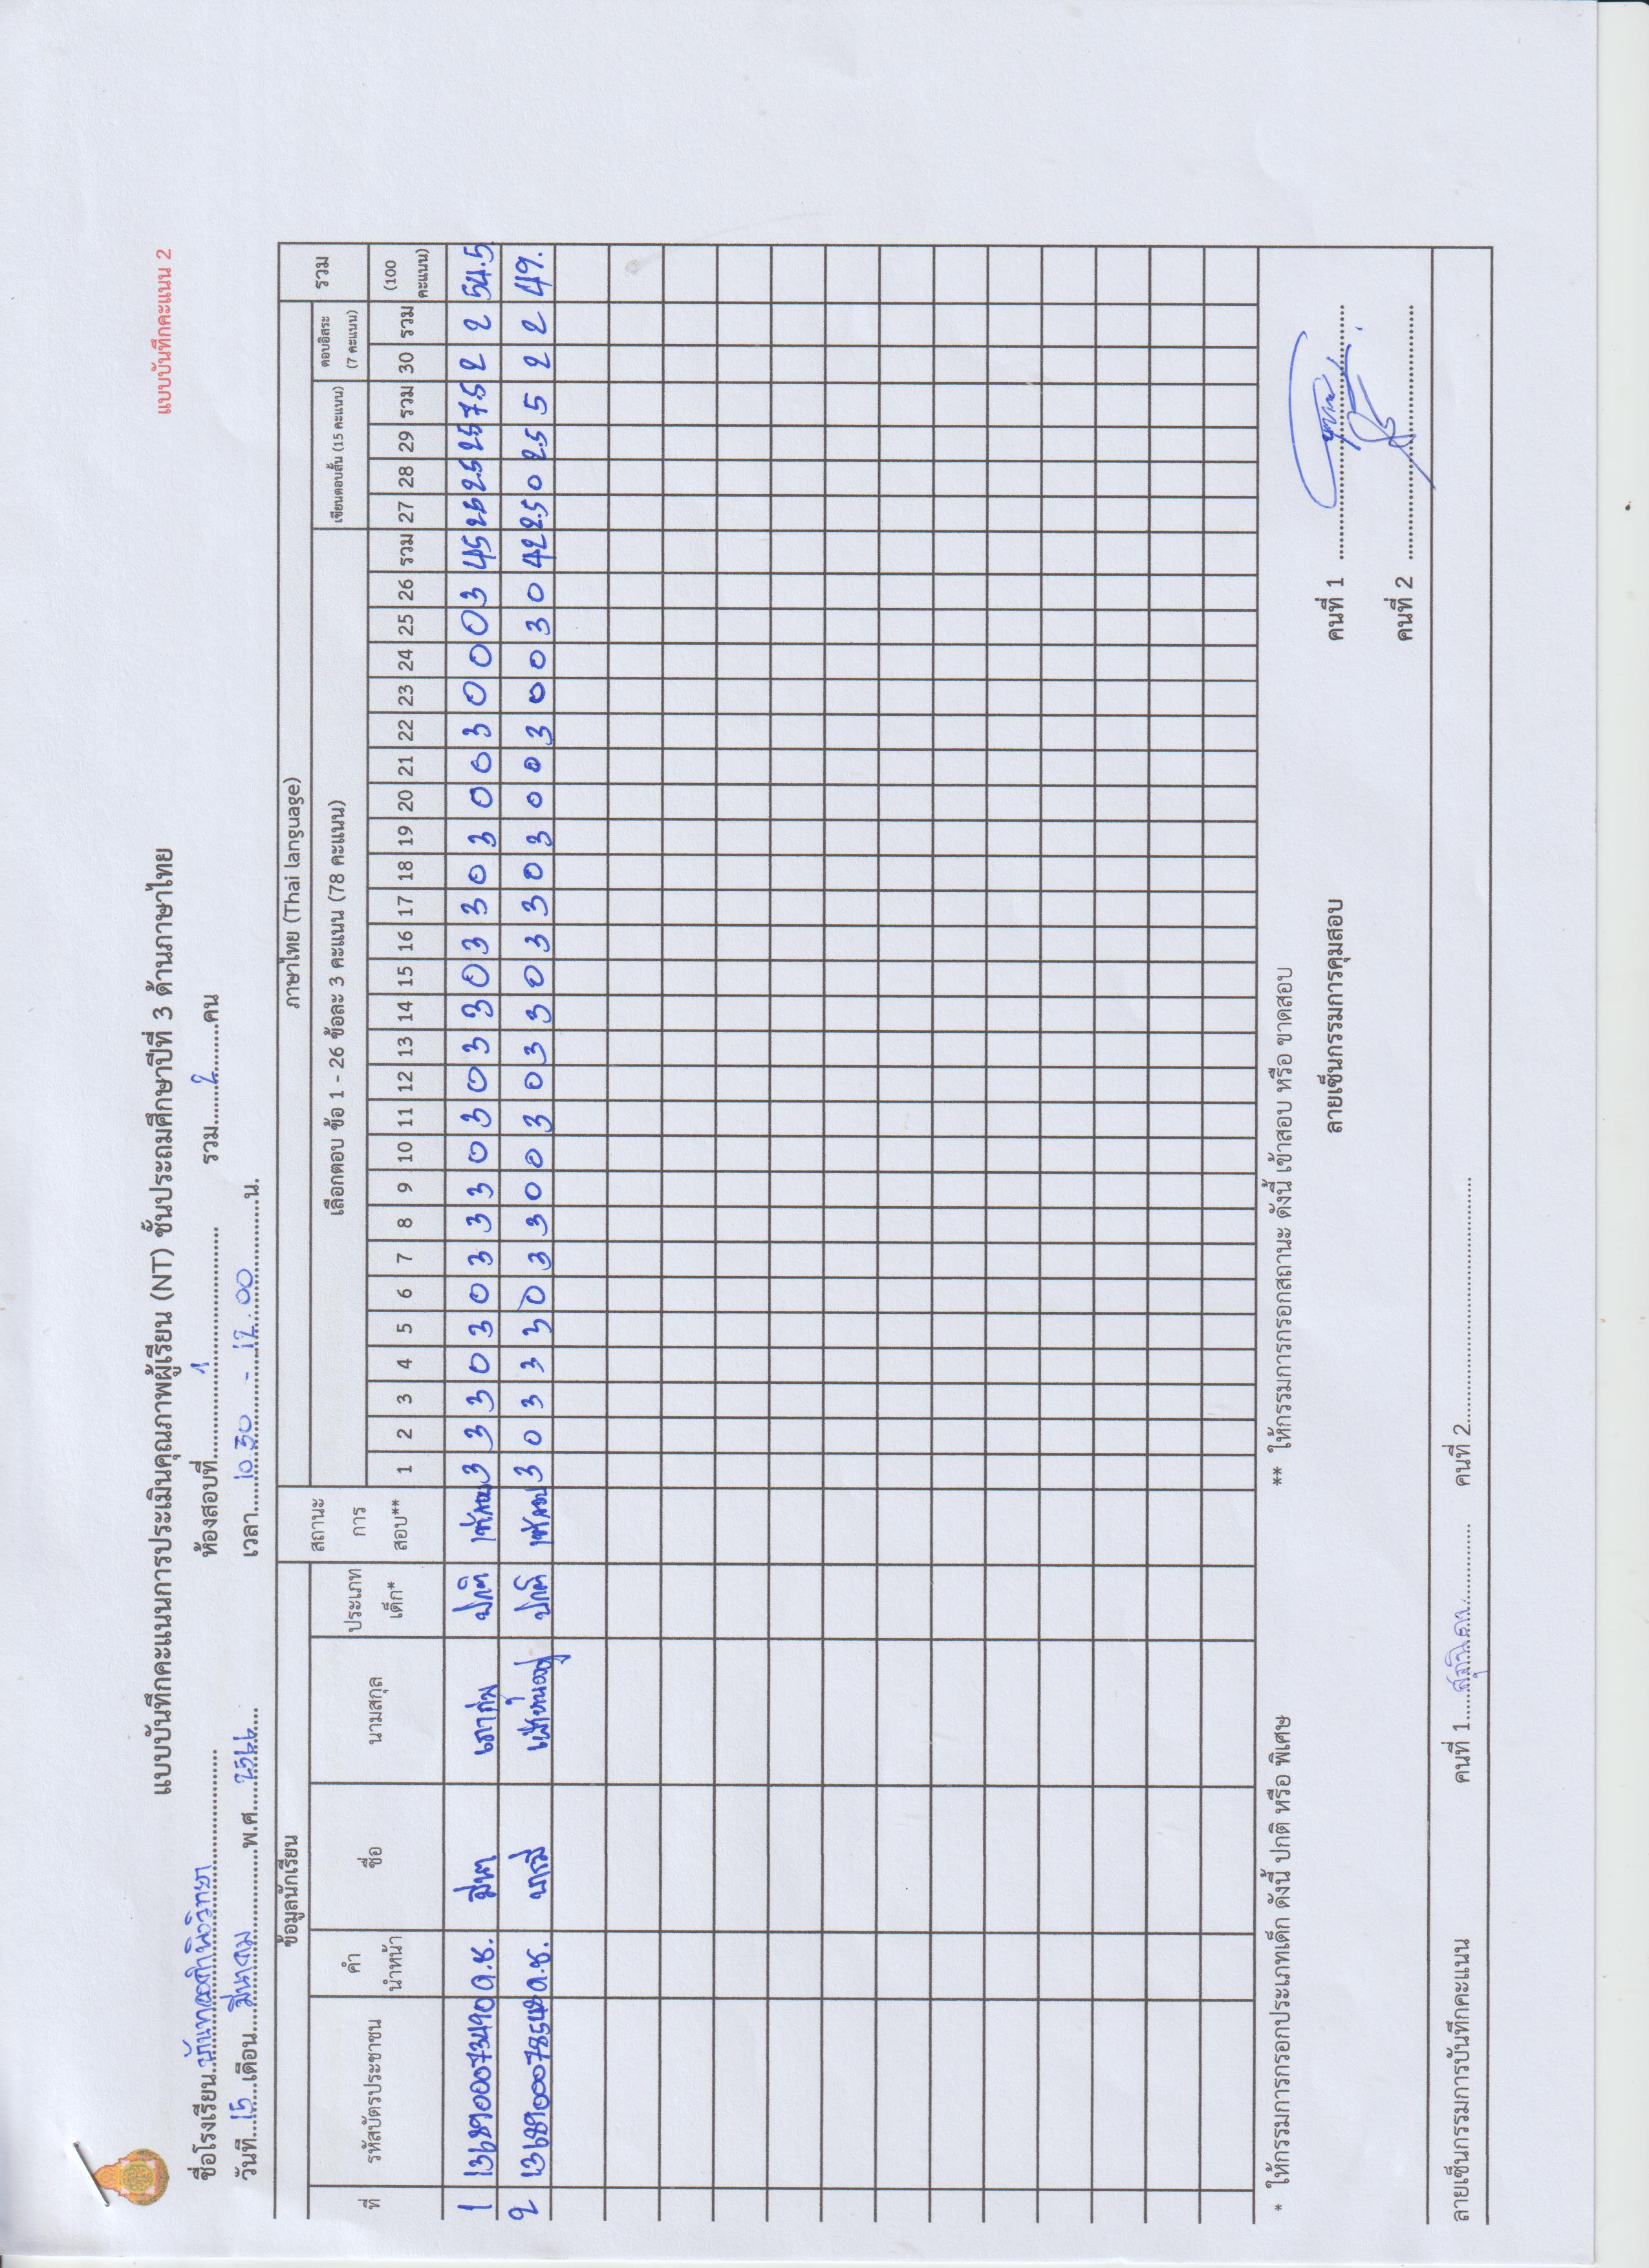 แบบบันทึกคะแนน 2
แบบบันทึกคะแนนการประเมินคุณภาพผู้เรียน (NT) ชั้นประถมศึกษาปีที่ 3 ด้านภาษาไทย
ชื่อโรงเรียน ห้องสอบที่ 1 รวม 2 คน
วันที่ 15 เดือน มีนาคม พ.ศ. 2566 เวลา 10.30 - 12.00 น.
ข้อมูลนักเรียน สถานะการสอบ** ภาษาไทย (Thai language) รวม
เลือกตอบ ข้อ 1 - 26 ข้อละ 3 คะแนน (78 คะแนน) เขียนตอบสั้น (15 คะแนน) ตอบอิสระ (7 คะแนน)
ที่ รหัสบัตรประชาชน คำนำหน้า ชื่อ นามสกุล ประเภทเด็ก* 1 2 3 4 5 6 7 8 9 10 11 12 13 14 15 16 17 18 19 20 21 22 23 24 25 26 รวม 27 28 29 รวม 30 รวม (100 คะแนน)
1 1368900073490 ด.ช. มีนา ปกติ เข้าสอบ 3 3 3 0 3 0 3 3 3 0 3 0 3 3 0 3 3 0 3 0 0 3 0 0 0 3 45 2.5 2.5 2.5 7.5 2 2 54.5
2 1368900078548 ด.ช. ปกติ เข้าสอบ 3 0 3 3 3 0 3 3 0 0 3 0 3 3 0 3 3 0 3 0 0 3 0 0 3 0 42 2.5 0 2.5 5 2 2 49.
* ให้กรรมการกรอกประเภทเด็ก ดังนี้ ปกติ หรือ พิเศษ ** ให้กรรมการกรอกสถานะ ดังนี้ เข้าสอบ หรือ ขาดสอบ
ลายเซ็นกรรมการคุมสอบ คนที่ 1
คนที่ 2
ลายเซ็นกรรมการบันทึกคะแนน คนที่ 1 คนที่ 2